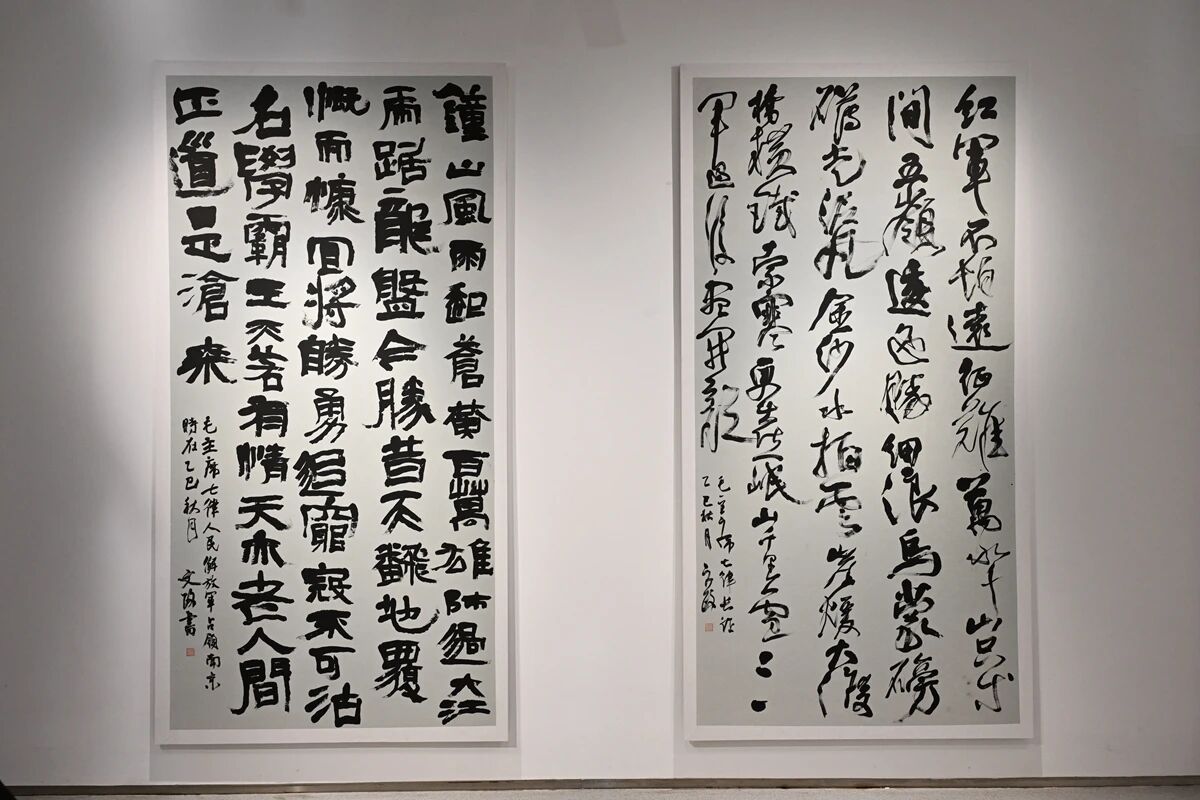 紅軍不怕遠征難萬水千山只等
間五嶺逶迤騰細浪烏蒙磅
礴走泥丸金沙水拍雲崖煖大渡
橋橫鐵索寒更喜岷山千里雪三
軍過後盡開顏
毛主席七律長征
乙巳秋月
鐘山風雨起蒼黃百萬雄師過大江
虎踞龍盤今勝昔天飜地覆
慨而慷宜將勝勇追窮寇不可沽
名學霸王天若有情天亦老人間
正道是滄桒
毛主席七律人民解放軍占領南京
時在乙巳秋月 書